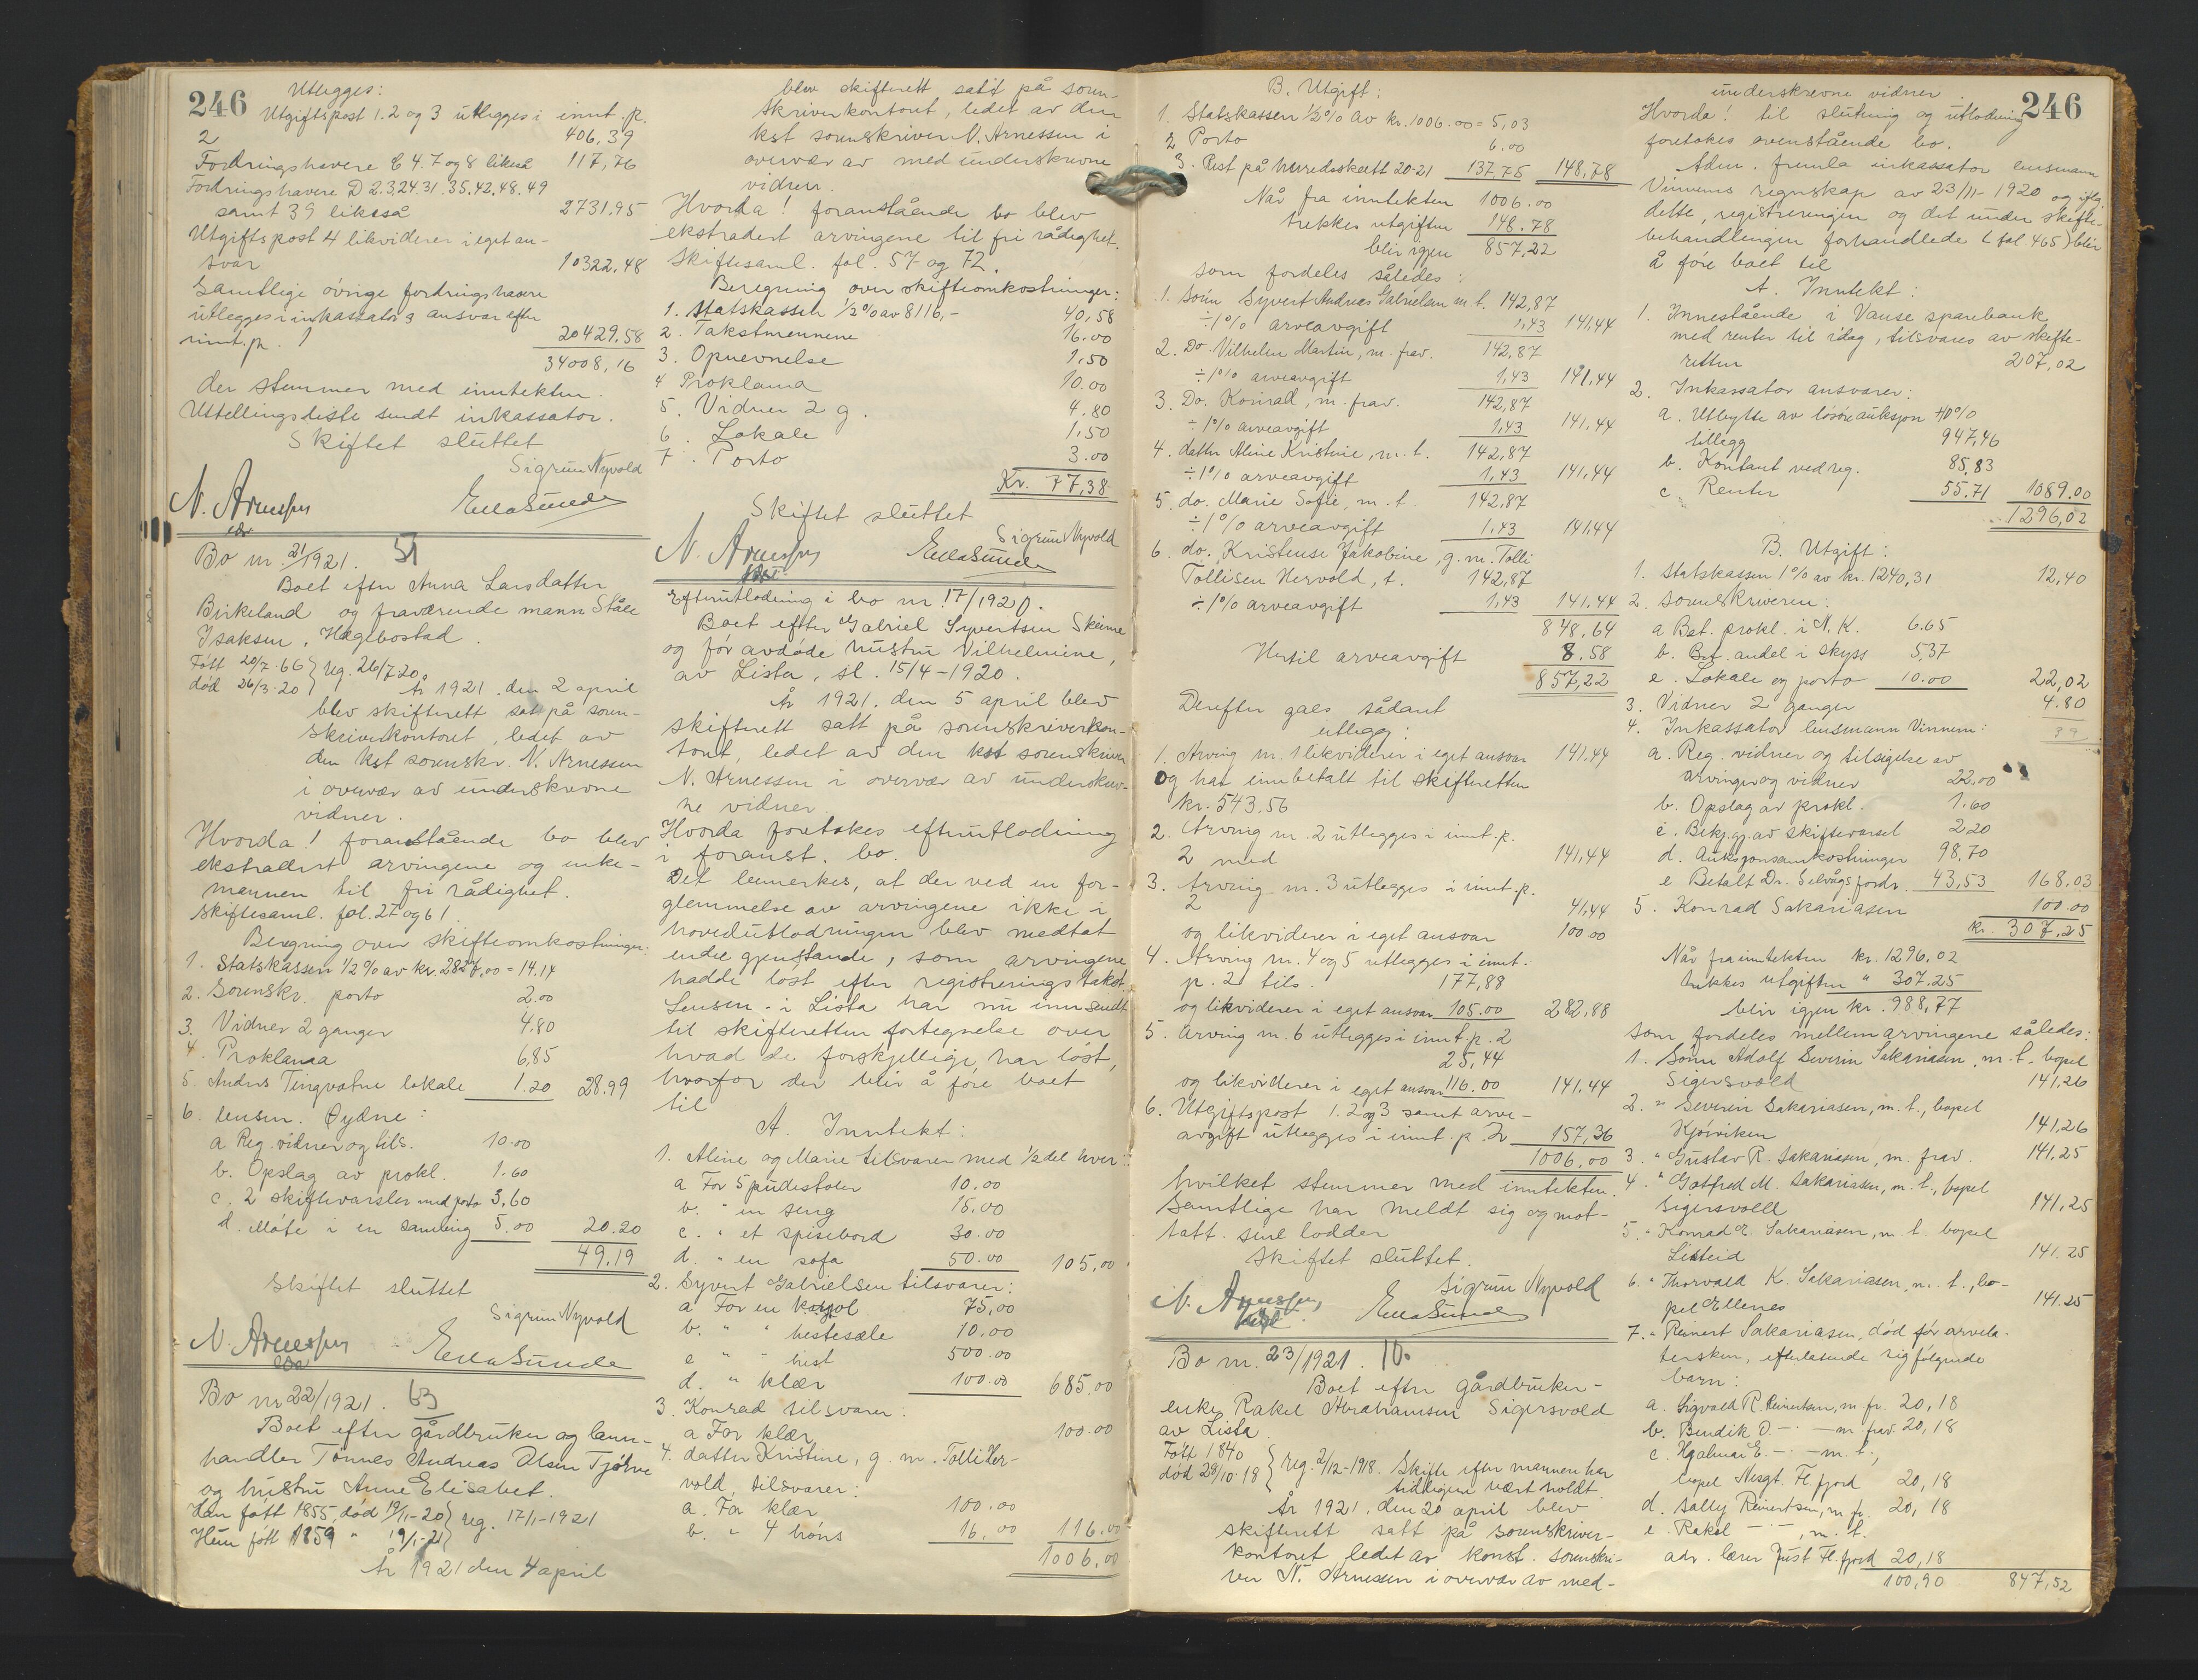 246
Utlegges:
Utgiftspost 1. 2 og 3 utlegges i innt. p.
2 406,39
Fordringshavere C 4. 7 og 8 likeså 117,76
Fordringshavere D 2.3.24.31.35.42.48.49
samt 39 likeså 2731.95
Utgiftspost 4 likviderer i eget an-
svar 10322,48
Samtlige øvrige fordringshavere
utlegges i inkassators ansvar efter
innt. p. 1 20429.58
34008,16
der stemmer med inntekten.
Utstellingsliste sendt inkassator.
Skiftet sluttet
Sigrun Nyvold
N. Arnessen
Ella Sunde
Bo nr. 21/1921. 51
Boet efter Anna Larsdatter
Birkeland og fraværende mann Ståle
Isaksen, Hægebostad.
Født 20/7-66 } reg. 26/7 20
død 26/3-20
År 1921. den 2 april
blev skifterett satt på soren-
skriverkontoret, ledet av
den kst sorenskr. N. Arnessen
i overvær av underskrevne
vidner.
Hvorda! foranstående bo blev
ekstradert arvingene og enke-
mannen til fri rådighet.
Skiftesaml. fol. 27 og 61
Beregning over skifteomkostninger:
1. Statskassen ½% av kr. 2827,00 = 14.14
2. Sorenskr. porto 2.00
3. Vidner 2 ganger 4.80
4. Proklama 6,85
5. Anders Tingvatne lokale 1.20 28.99
6. lensm. Øydne:
a Reg. vidner og tils. 10.00
b. Opslag av prokl. 1.60
c. 2 skiftevarsler med porto 3,60
d. Møte i en samling 5.00 20.20
49,19
Skiftet sluttet
Sigrun Nyvold
N. Arnessen
Ella Sunde
Bo nr 22/1921. 63
Boet efter gårdbruker og lann-
handler Tønnes Andreas Olsen Tjørve
og hustru Anne Elisabet.
Han født 1855, død 19/11-20 } reg. 17/1-1921
Hun født 1859 " 19/1-21
År 1921 den 4 april
blev skifterett satt på soren-
skriverkontoret, ledet av den
kst sorenskriver N. Arnessen i
overvær av med underskrevne
vidner.
Hvorda! foranstående bo blev
ekstradert arvingene til fri rådighet.
Skiftesaml. fol. 57 og 72.
Beregning over skifteomkostninger:
1. Statskassen ½% av 8116,- 40,58
2. Takstmennene 16.00
3. Opnevnelse 1,50
4 Proklama 10.00
5. Vidner 2 g. 4.80
6. Lokale 1,50
7. Porto 3.00
Kr. 77,38
Skiftet sluttet
Sigrun Nyvold
N. Arnessen
Ella Sunde
Efterutlodning i bo nr. 17/1920.
Boet efter Gabriel Syvertsen Skeime
og før avdøde hustru Vilhelmine,
av Lista, sl. 15/4-1920.
År 1921. den 5 april blev
skifterett satt på sorenskriverkon-
toret, ledet av den kst sorenskriver
N. Arnessen i overvær av underskrev-
ne vidner.
Hvorda foretokes efterutlodning
i foranst. bo.
Det bemerkes, at der ved en for-
glemmelse av arvingene ikke i
hovedutlodningen blev medtat
endel gjenstande, som arvingene
hadde løst efter registreringstakst.
Lensm. i Lista har nu innsendt
til skifteretten fortegnelse over
hvad de forskjellige har løst,
hvorfor der blir å føre boet
til
A. Inntekt:
1. Aline og Marie tilsvarer med ½ del hver:
a For 5 pudestoler 10.00
b. " en seng 15.00
c. " et spisebord 30.00
d. " en sofa 50.00 105,00
2. Syvert Gabrielsen tilsvarer:
a For en karjol 75,00
b. " " hestesæle 10.00
c " " hest 500.00
d. " klær 100.00 685,00
3. Konrad tilsvarer:
a For klær 100.00
4. datter Kristine, g. m. Tolli Her-
vold, tilsvarer:
a. For klær 100.00
b. " 4 høns 16.00 116.00
1006.00
B. Utgift:
1. Statskassen ½% av kr. 1006.00 = 5,03
2 Porto 6.00
3. Rest på herredsskatt 20-21 137.75 148,78
Når fra inntekten 1006.00
trekkes utgiften 148.78
blir igjen 857,22
som fordeles således:
1. Sønn Syvert Andreas Gabrielsen m. t. 142,87
÷ 1% arveavgift 1,43 141,44
2. Do. Vilhelm Martin, m. frav. 142,87
÷ 1% arveavgift 1,43 141,44
3. Do. Konrad, m. frav. 142,87
÷ 1% arveavgift 1,43 141,44
4. datter Aline Kristine, m. t. 142,87
÷ 1% arveavgift 1,43 141,44
5. do. Marie Sofie, m. t. 142,87
÷ 1% arveavgift 1.43 141,44
6. do. Kristense Jakobine, g. m. Tolli
Tollisen Hervold, t. 142,87
÷ 1% arveavgift 1,43 141,44
848,64
Hertil arveavgift 8.58
857,22
Derefter gaes sådant
utlegg:
1. Arving nr. 1 likviderer i eget ansvar 141.44
og har innbetalt til skifteretten
kr. 543.56
2. Arving nr. 2 utlegges i innt. p.
2 med 141,44
3. Arving nr. 3 utlegges i innt. p.
2 41,44
og likviderer i eget ansvar 100.00
4. Arving nr. 4 og 5 utlegges i innt.
p. 2 tils. 177,88
og likviderer i eget ansvar 105.00 282,88
5. Arving nr. 6 utlegges i innt. p. 2
25,44
og likviderer i eget ansvar 116.00 141,44
6. Utgiftspost 1. 2 og 3 samt arve-
avgift utlegges i innt. p. 2 157,36
1006.00
hvilket stemmer med inntekten.
Samtlige har meldt sig og mot-
tatt sine lodder
Skiftet sluttet.
Sigrun Nyvold
N. Arnessen
Ella Sunde
Bo nr. 23/1921. 10.
Boet efter gårdbruker-
enke Rakel Abrahamsen Sigersvold
av Lista
Født 1840 } reg. 2/12-1918. Skifte efter mannen har
død 28/10-18 tidligere vært holdt.
År 1921. den 20 april blev
skifterett satt på sorenskriver-
kontoret, ledet av konst. sorenskri-
ver N. Arnessen i overvær av med-
246
underskrevne vidner.
Hvorda! til slutning og utlodning
foretokes ovenstående bo.
Adm. fremla inkassator lensmann
Vinnems regnskap av 23/11-1920 og iflg.
dette, registreringen og det under skifte-
behandlingen forhandlede (fol. 465) blir
å føre boet til
A. Inntekt:
1. Innestående i Vanse sparebank
med renter til idag, tilsvares av skifte-
retten 207,02
2. Inkassator ansvarer:
a. Utbytte av løsøreauksjon + 10%
tillegg 947,46
b. Kontant ved reg. 85,83
c. Renter 55.71 1089.00
1296,02
B. Utgift:
1. Statskassen 1% av kr. 1240,31 12,40
2. Sorenskriveren:
a Bet. prokl. i N. K. 6.65
b. Bet. andel i skyss 5,37
c. Lokale og porto 10.00 22,02
3. Vidner 2 ganger 4.80
4. Inkassator lensmann Vinnem:
a. Reg. vidner og tilsigelse av
arvinger og vidner 22.00
b. Opslag av prokl. 1.60
c. Bekj.gj. av skiftevarsel 2.20
d. Auksjonsomkostninger 98,70
e Betalt Dr. Selvågs fordr. 43,53 168.03
5. Konrad Sakariasen 100.00
kr. 307,25
Når fra inntekten kr. 1296,02
trekkes utgiften " 307.25
blir igjen kr. 988,77
som fordeles mellem arvingene således:
1. Sønn Adolf Severin Sakariasen, m. t., bopel
Sigersvold 141,26
2. " Severin Sakariasen, m. t., bopel
Kjørviken 141,26
3. " Gustav R. Sakariasen, m. frav. 141,25
4. " Gotfred M. Sakariasen, m. t., bopel
Sigersvold 141,25
5. " Konrad E. Sakariasen, m. t. bopel
Listeid 141.25
6. " Thorvald K. Sakariasen, m. t., bo-
pel Ellenes 141.25
7. " Reinert Sakariasen, død før arvela-
tersken, efterlatende sig følgende
barn:
a. Sigvald R. Reinertsen, m. fr. 20,18
b. Bendik O. - " - m. frav. 20,18
c. Hjalmar E. - " - m. t.,
bopel Nesgt. Fl.fjord 20,18
d. Sally Reinertsen, m. fr. 20,18
e. Rakel - " -, m. t.
adr. lærer Just Fl.fjord 20,18
100,90 847,52